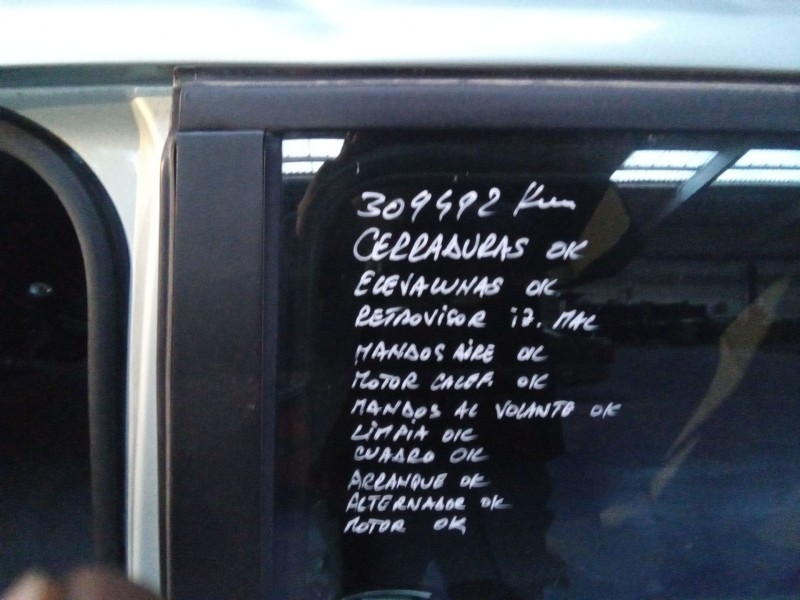 309492 Km
CERRADURAS OK
ELEVALUNAS OK
RETROVISOR iz. MAL
MANDOS AIRE OK
MOTOR CALEF. OK
MANDOS AL VOLANTE OK
LIMPIA OK
CUADRO OK
ARRANQUE OK
ALTERNADOR OK
MOTOR OK